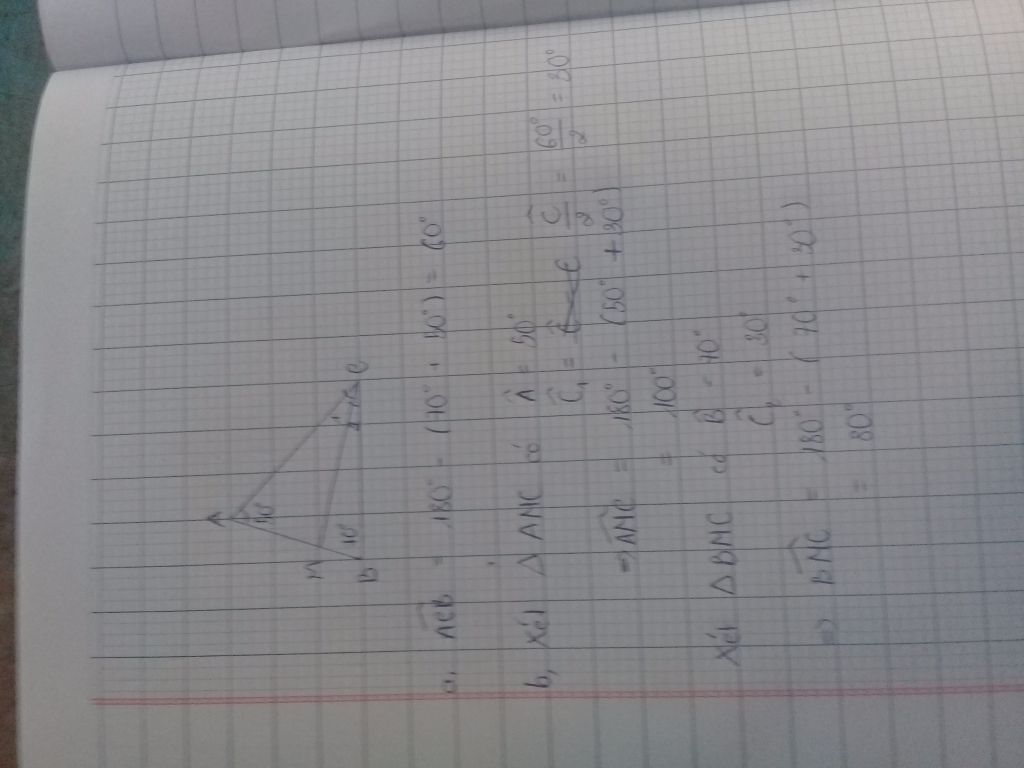 A
50°
M
70°
B
C
a, ACB = 180° - (70° + 50°) = 60°
b, Xét Δ AMC có Â = 50°
Ĉ₁ = Ĉ/2 = 60°/2 = 30°
=> AMC = 180° - (50° + 30°)
= 100°
Xét Δ BMC có B̂ = 70°
Ĉ₂ = 30°
=> BMC = 180° - (70° + 30°)
= 80°